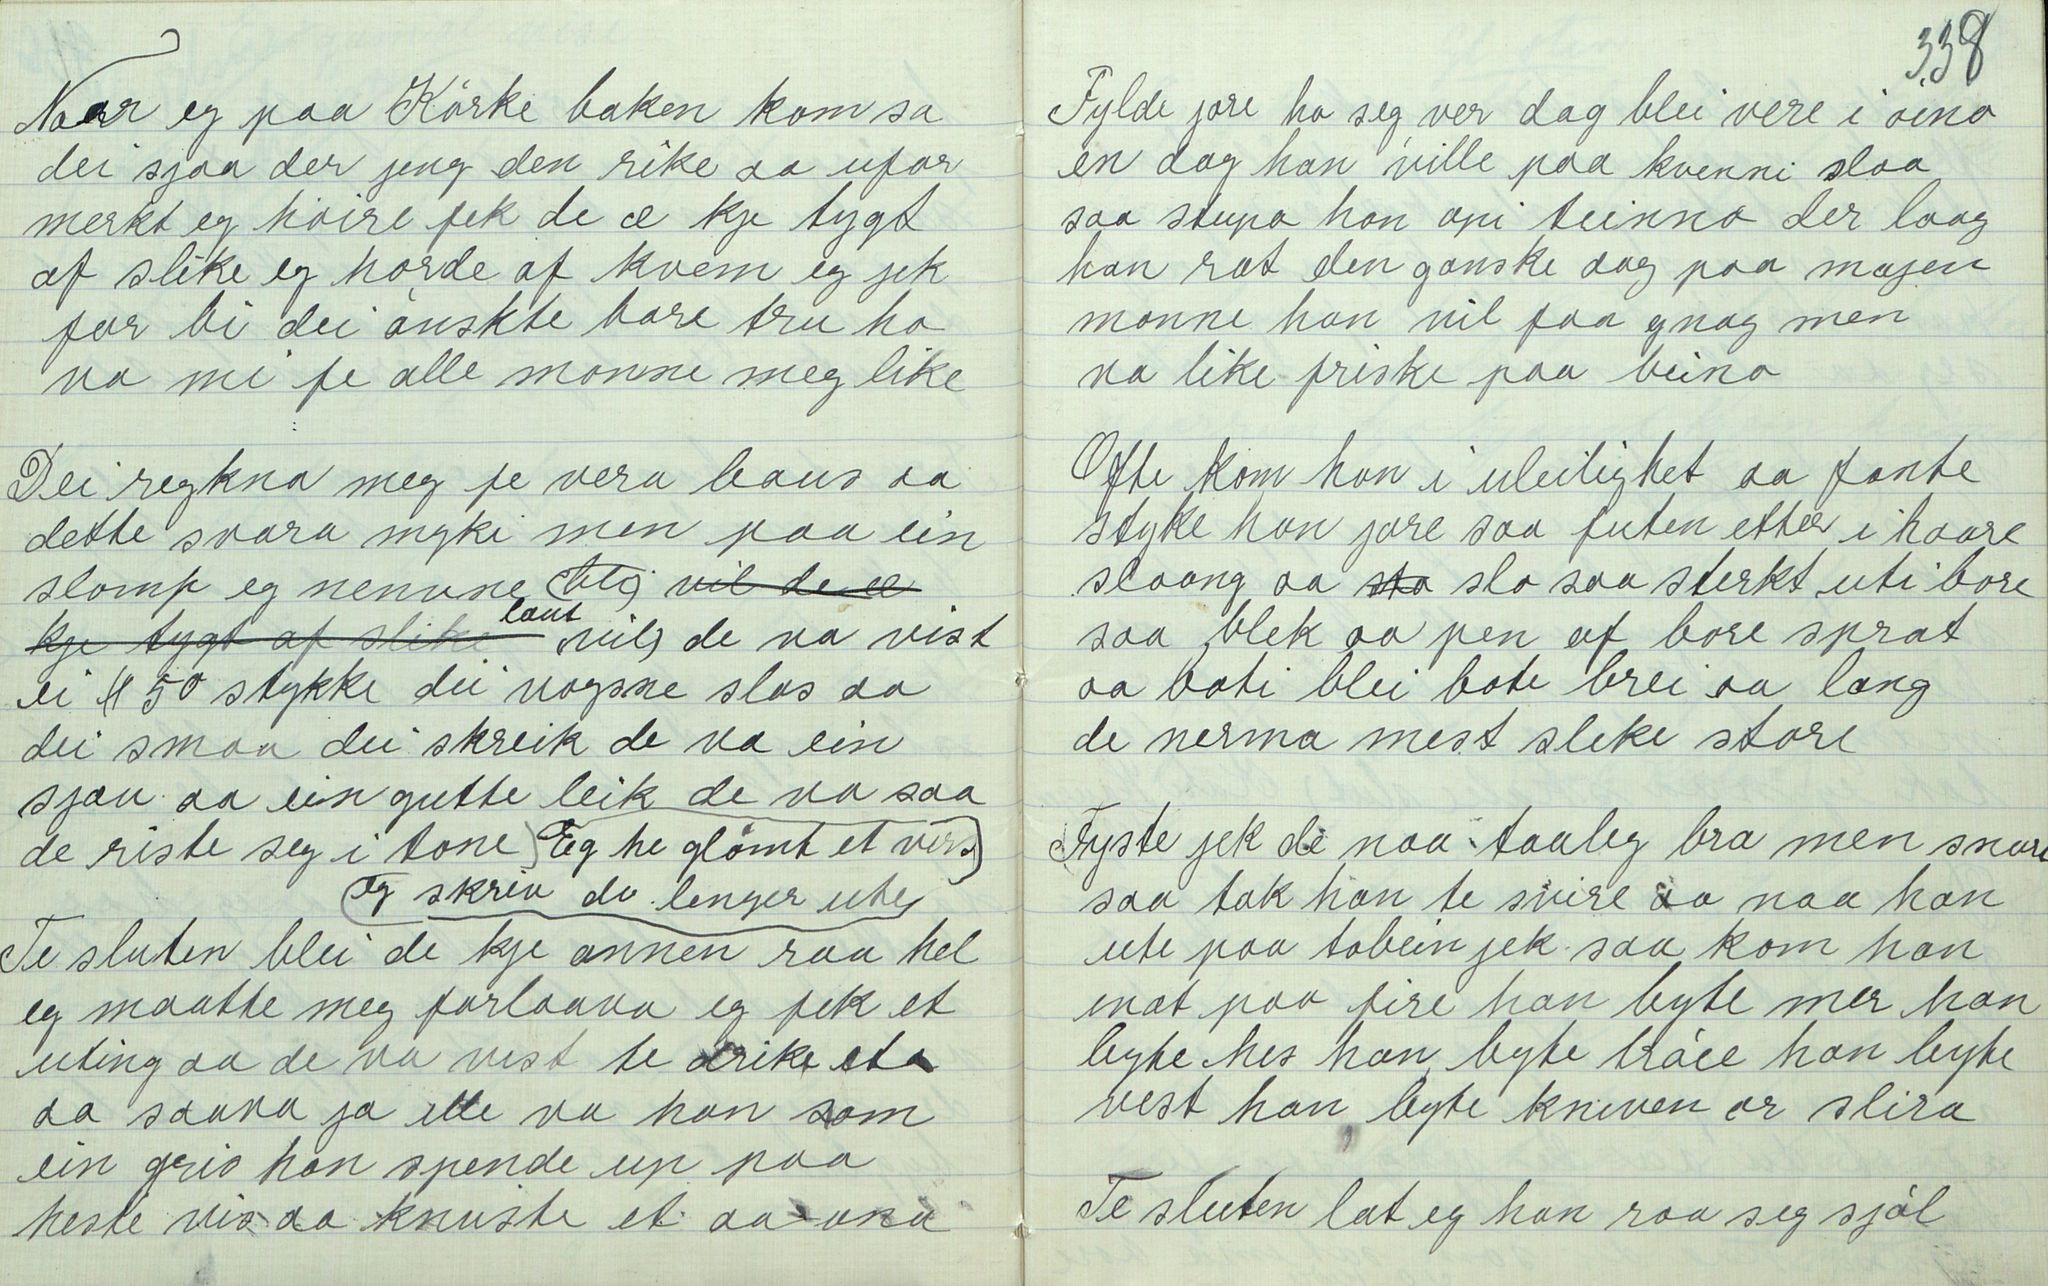 Naar eg paa Körke baken kom sa
dei sjaa der jeng den rike aa ufor
merkt eg höire fek de æ kje tygt
af slike eg hörde af kvem eg jek
for bi dei önskte bare tru ha
va mi fe alle monne meg like
Dei reykna meg fe vera baus aa
dette svara myki men paa ein
slomp eg nemne vil de æ
kje tygt af slike laut vil de va vist
ei 50 stykke dei vaysne slos aa
dei smaa dei skreik de va ein
sjau aa ein gutte leik de va saa
de riste seg i tone (Eg he glömt et vers)
(Eg skriv de lenger ute)
Te sluten blei de kje annen raa hel
eg maatte meg forlaava eg fek et
uting aa de va vist te drike eta
aa saava ja ille va han som
ein gris han spende up paa
heste vis aa knuste et aa ana
338
Fylde jore ha seg ver dag blei vere i öino
en dag han ville paa kvenni slaa
saa stupa han opi teinno der laag
han rat den ganske dag paa majen
monne han vil faa gnag men
va like friske paa beino
Ofte kom han i uleilighet aa fante
styke han jore saa futen etter i haare
slaang aa sta slo saa sterkt uti bore
saa blek aa pen af bore sprat
aa boti blei bote brei aa lang
de nerma mest sleke store
Fyste jek de naa taaleg bra men snare
saa tok han te svire aa naa han
ute paa tobein jek saa kom han
inat paa fire han byte mer han
byte hes han byte tröie han byte
vest han byte kniven or slira
Te sluten lat eg han raa seg sjöl